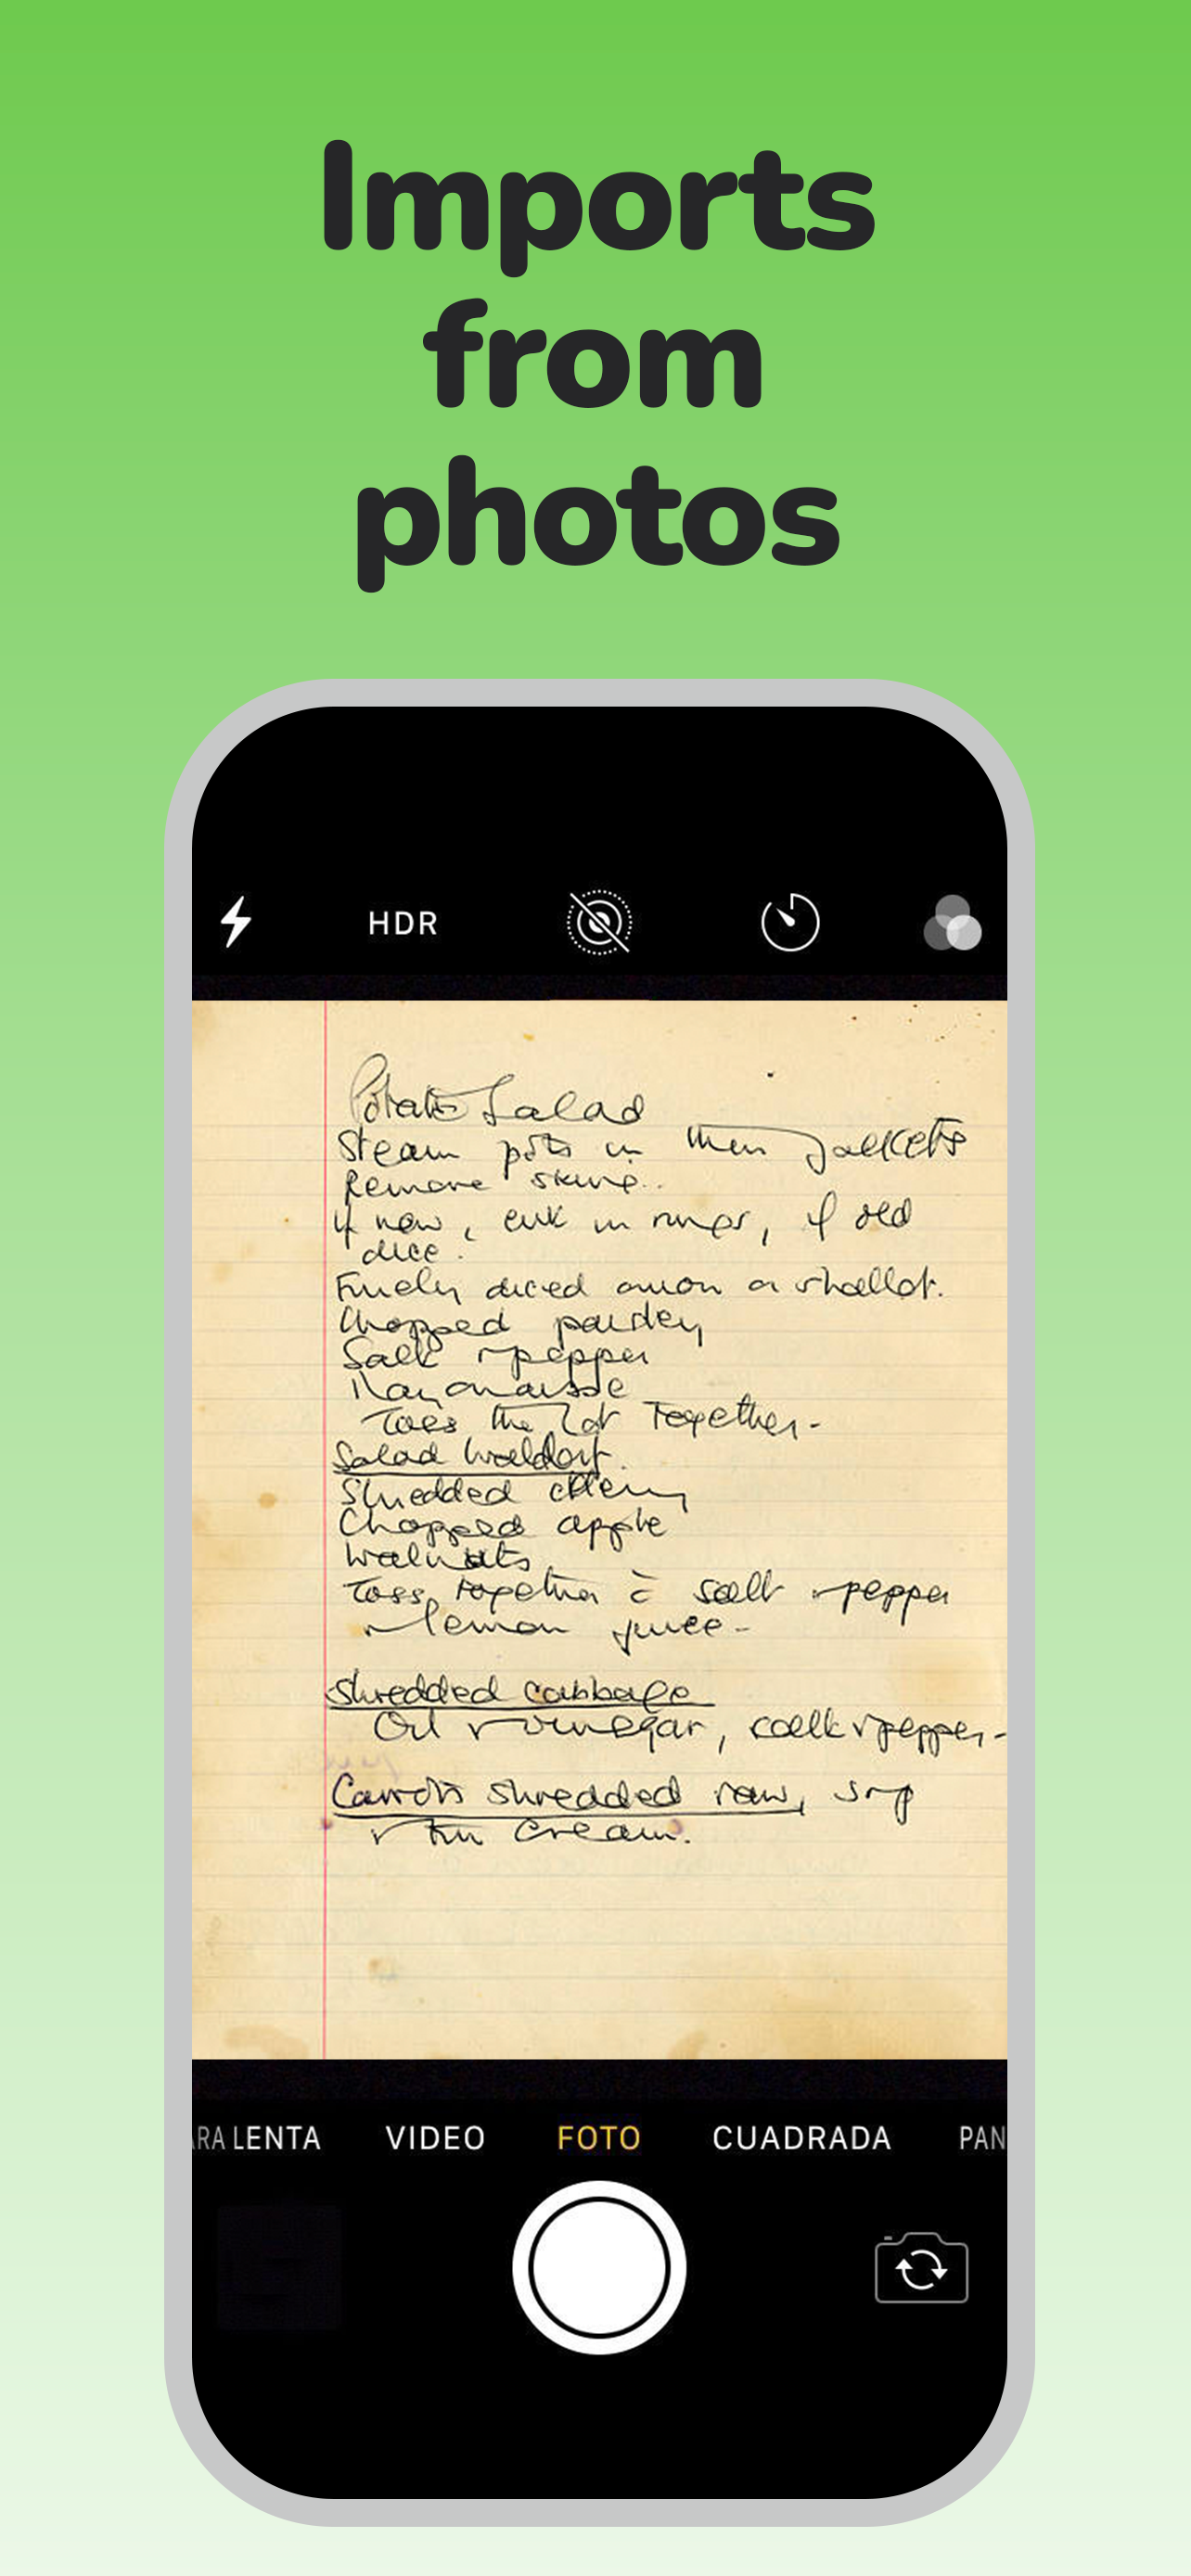 Imports
from
photos
HDR
Potato Salad
Steam pots in their jackets
Remove skins.
If new, cut in rings, if old
dice.
Finely diced onion or shallot.
Chopped parsley
Salt & pepper
Mayonaisse
Toss the lot together-
Salad Waldorf.
Shredded celery
Chopped apple
Walnuts
Toss together c̄ salt & pepper
& lemon juice-
Shredded cabbage
Oil & vinegar, salt & pepper-
Carrots shredded raw,
& cream.
ARA LENTA VIDEO FOTO CUADRADA PAN